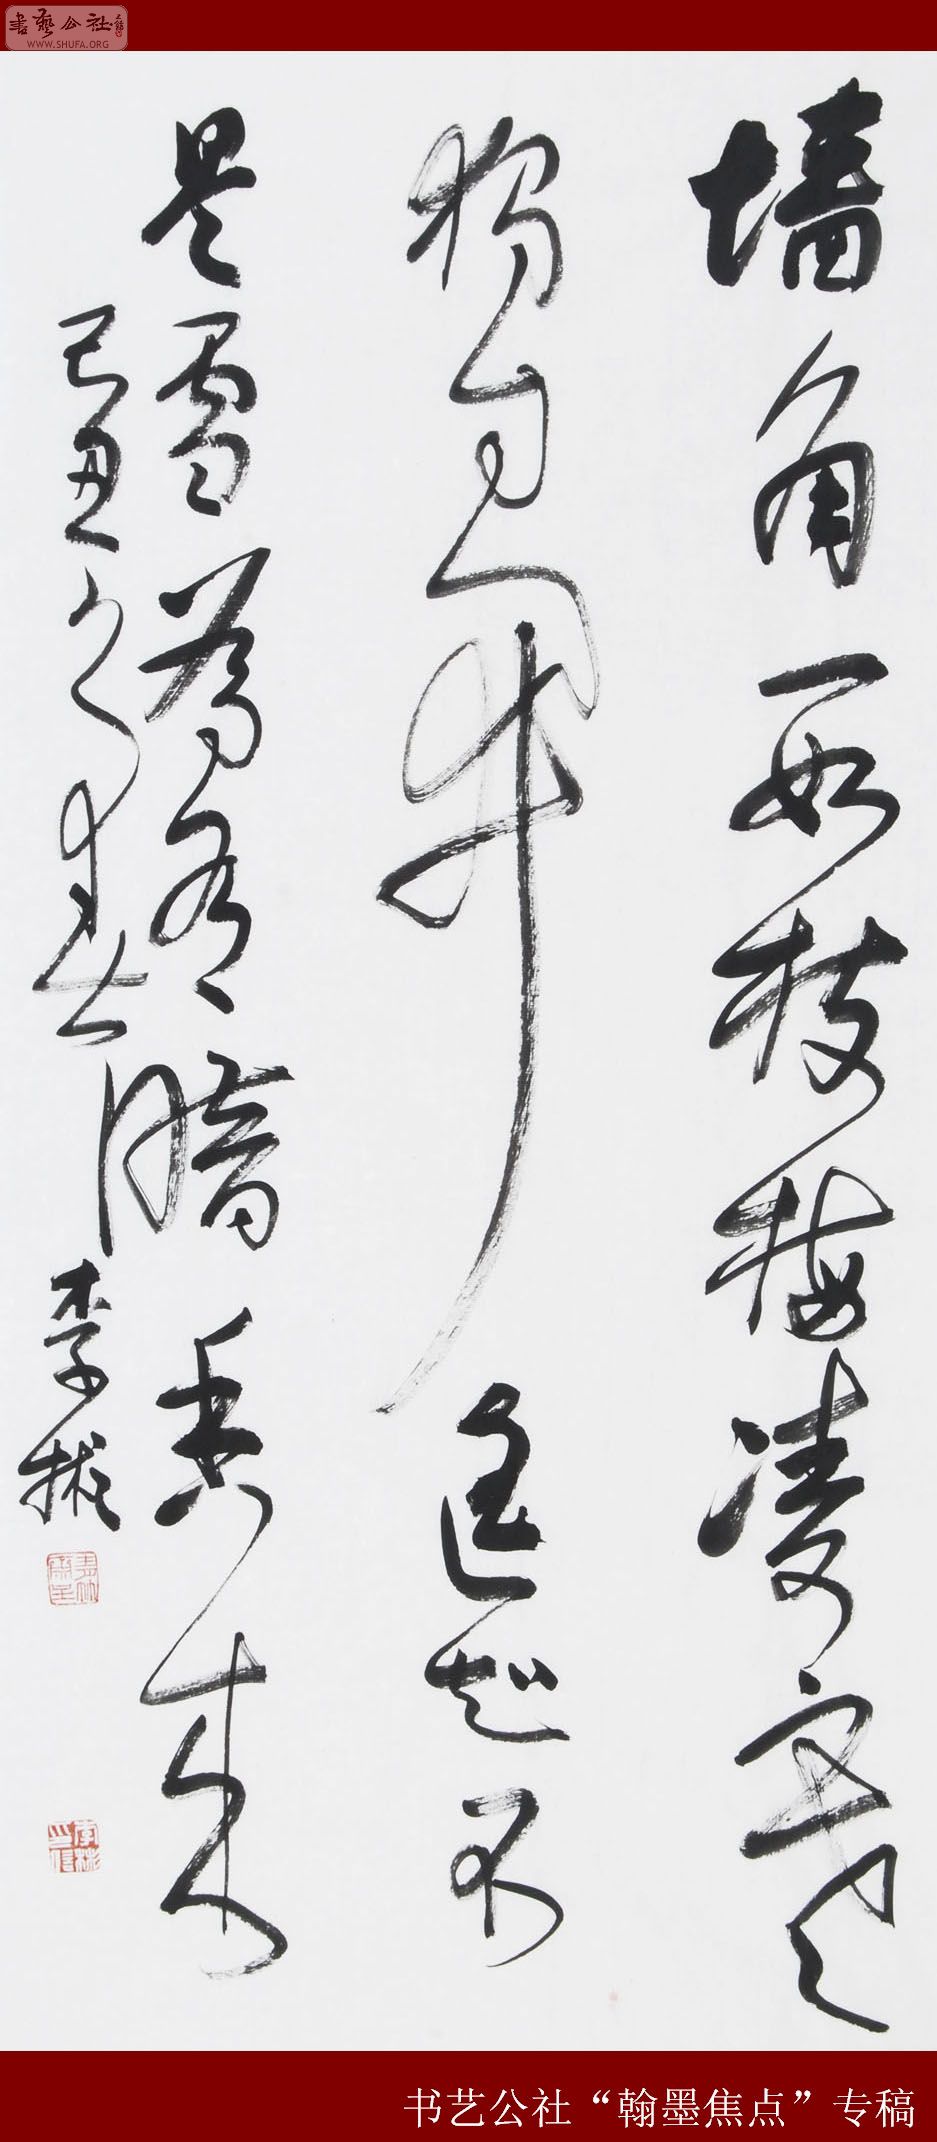 書藝公社
WWW.SHUFA.ORG
墙角数枝梅凌寒
独自開遥知不
是雪為有暗香来
己丑
李彬
书艺公社“翰墨焦点”专稿